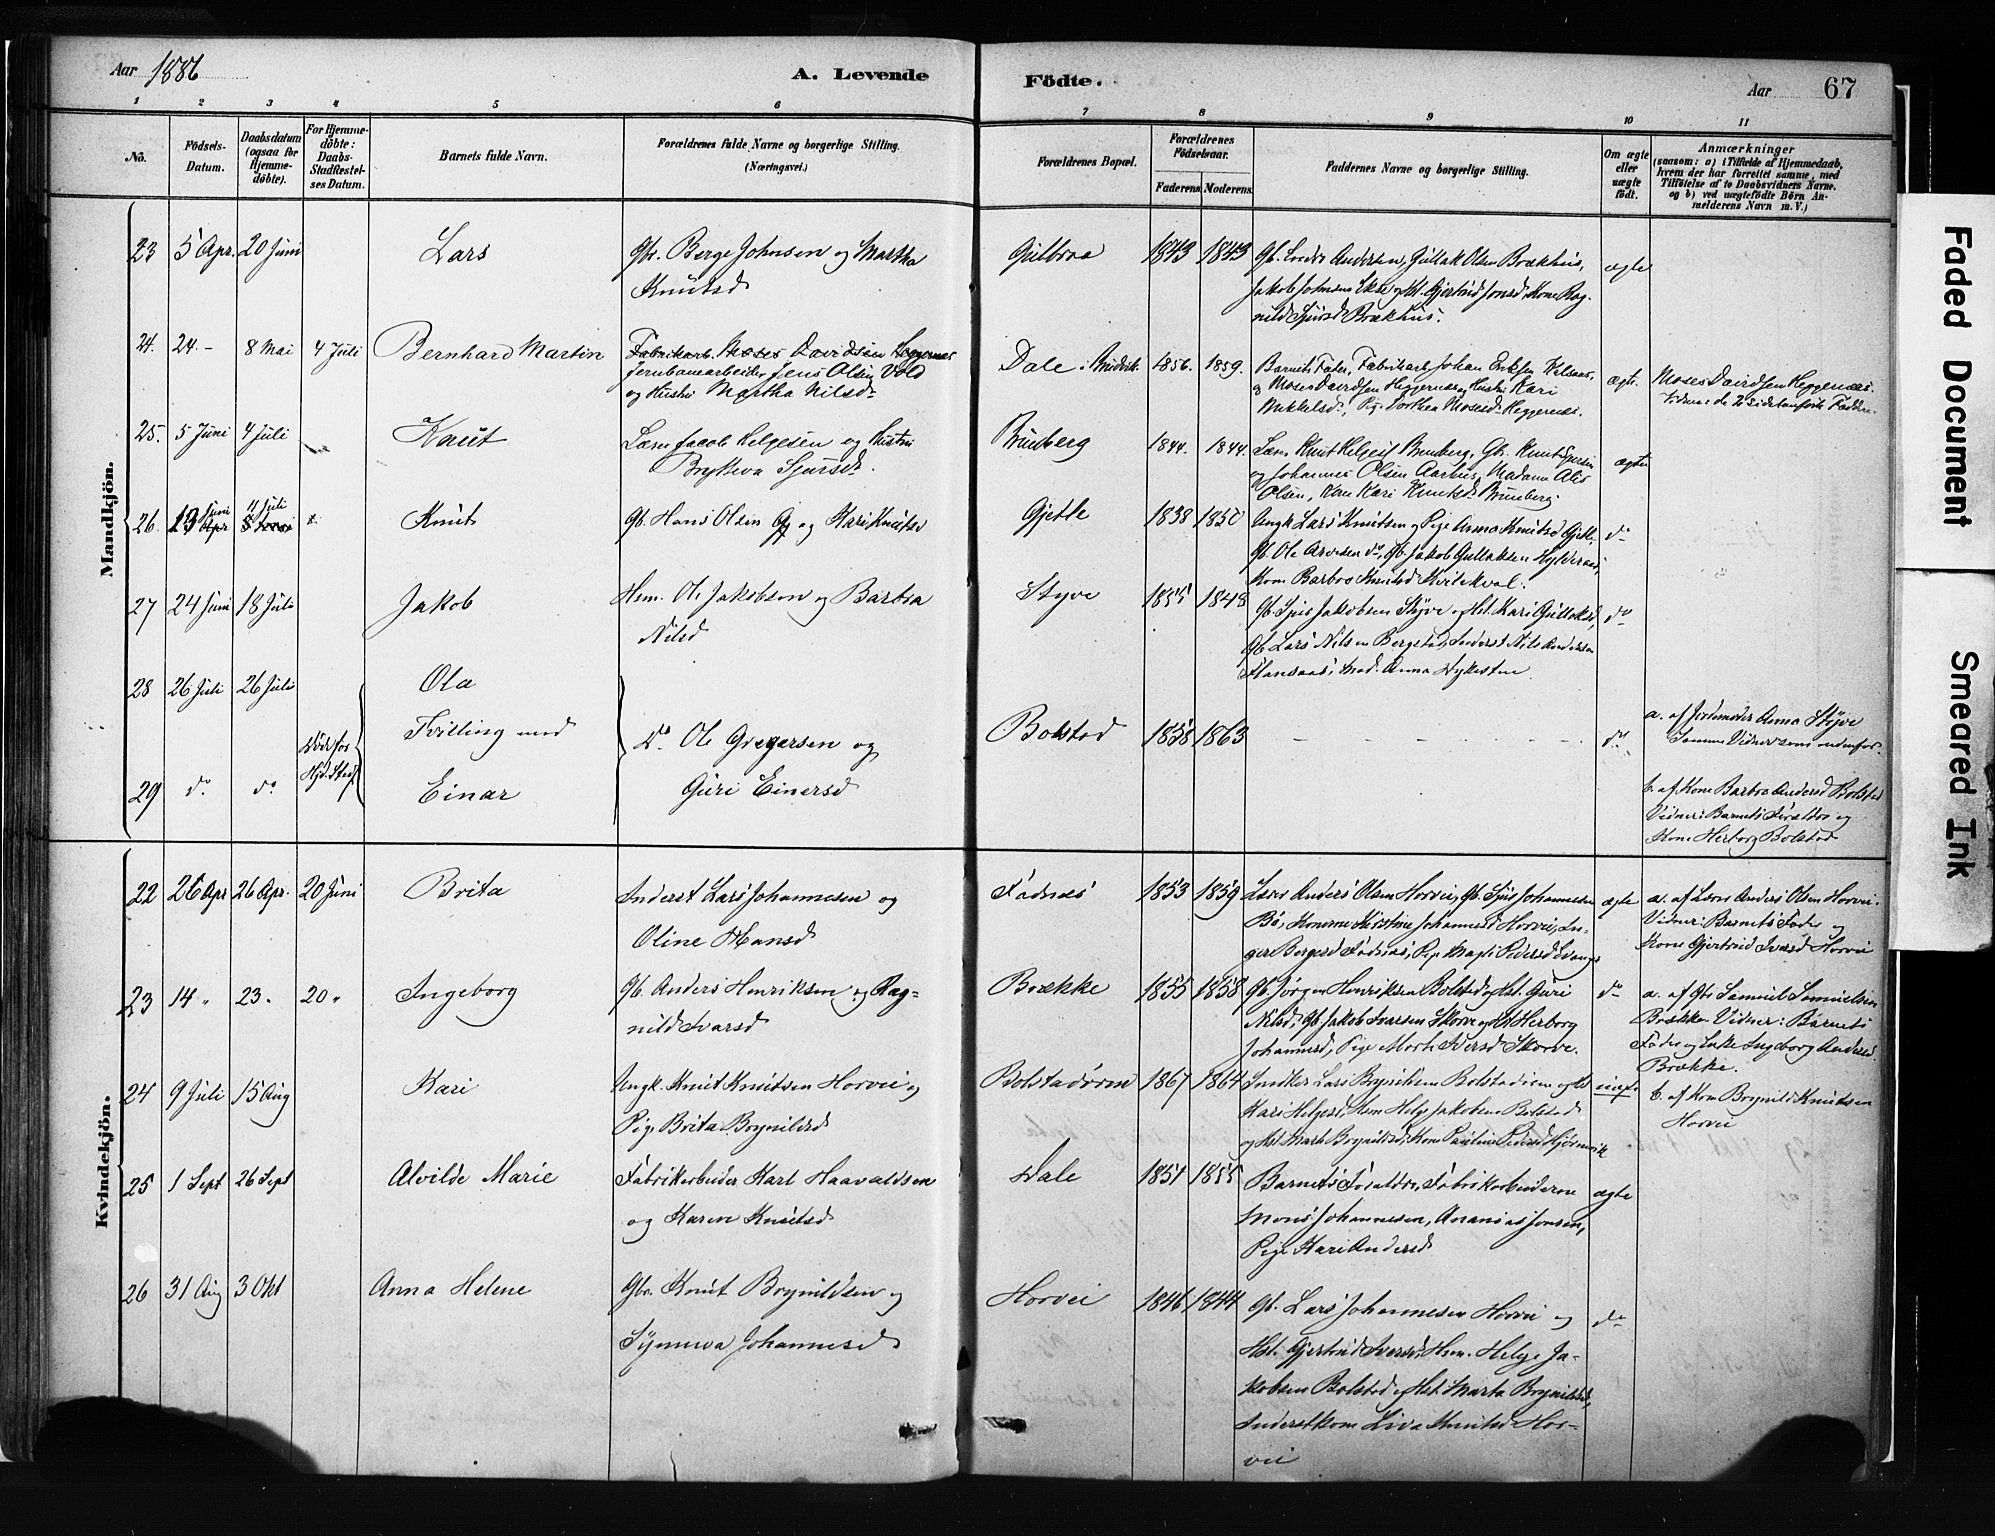 Aar 1886
A. Levende
Födte.
Aar
67
1 2 3 4 5 6
7 8 9 10 11
No.
Födsels-Datum.
Daabsdatum (ogsaa for Hjemme-döbte).
For Hjemme-döbte: Daabs-Stadfæstel-ses Datum.
Barnets fulde Navn.
Forældrenes fulde Navne og borgerlige Stilling. (Næringsvei.)
Forældrenes Bopæl.
Forældrenes Födselsaar.
Faderens. Moderens.
Faddernes Navne og borgerlige Stilling.
Om ægte eller uægte födt.
Anmærkninger
(saasom: a) i Tilfælde af Hjemmedaab,
hvem der har forrettet samme, med
Tilföielse af to Daabsvidners Navne.
og b) ved uægtefödte Börn An-
melderens Navn m. V.)
Mandkjön.
23 5 Apr. 20 Juni Lars Gbr. Berge Johnsen og Martha
Knutsd
Gulbraa 1843 1843 Gb. Andersen, Gullak Olsen Brækhus,
Jakob Johnsen Ekse og Hst. Gjertrud Jonsd, Kone Rag-
nild Sjursd Brækhus.
ægte
24. 24.- 8 Mai 4 Juli Bernhard Martin Fabrikarb. Moses Davidsen Heggernæs
Jernbanearbeider Jens Olsen Vold
og Hustru Martha Nilsd.
Dale i Bruvik 1856. 1859. Barnets Fader, Fabrikarb. Johan Eriksen
og Moses Davidsen Heggernæs og Hustru Kari
Mikkelsd., Pige Dorthea Mosesd. Heggernæs.
ægte. Moses Davidsen Heggernæs.
Vidner: de 2 sidstanførte Faddere.
25. 5 Juni 4 Juli Knut Læser Jacob Helgesen og Hustru
Brytteva Sjursd.
Brunberg 1844. 1844. Knut Helgesen Brunberg, Gbr. Knut
og Johannes Olsen Aarhus, Madame
Olsen, Kone Kari Knutsd. Brunberg.
ægte
26. 13 Juni 11 Juli Knut Gb. Hans Olsen og Kari Knutsd
Gjelle 1838 1850 Ungk Lars Knutsen og Pige Anna Knutsd Gjelle,
Gb. Ole Arnesen do, Gb. Jakob Gullaksen
Kone Barbro Knutsd Kvilekval.
do
27 24 Juni 18 Juli Jakob Hsm. Ole Jakobsen og Barbra
Nilsd
Styve 1855 1848 Gb. Sjur Jakobsen Styve og Hst. Kari Gullaksd,
Gb Lars Nilsen Bergstad, Inderst Nils Andersen
Anna Dyvesten
do
28 26 Juli 26 Juli Ola
Tvilling med
29 do do Einar
Død før Hjd. Stadf.
do Ole Gregersen og
Guri Einersd
Bolstad 1858 1863 - - - - - do
a. af Jordmoder Anna Styve
Samme Vidner som nedenfor.
b. af Kone Barbra Andersd Bolstad
Vidner: Barnets Forældre og
Kone Herborg Bolstad
Kvindekjön.
22 26 Apr 26 Apr. 20 Juni Brita Inderst Lars Johannesen og
Oline Hansd
Fadnes 1853 1859 Lærer Anders Olsen Horvei, Gb. Sjur Johannesen
Bø, Konerne Kristine Johannesd Horvei, In-
ger Bergesd Fadnes, Pige Magli Pedersd Evanger
ægte a. af Lærer Anders Olsen Horvei.
Vidner: Barnets Fader og
Kone Gjertrud Iversd Horvei
23 14 " 23. 20 " Ingeborg Gb. Anders Henriksen og Rag-
nild Ivarsd
Brække 1855 1858 Gb. Jørgen Henriksen Bolstad og Hst. Guri
Nilsd, Gb Jakob Ivarsen Skorve og Hst Herborg
Johannesd, Pige Marta Iversd Skorve.
do a. af Gbr Samuel Samuelsen
Brække. Vidner: Barnets
Fader og Enke Ingeborg Andersd
Brække.
24 9 Juli 15 Aug Kari Ungk. Knut Knutsen Horvei og
Pige Brita Brynildsd
Bolstadøren 1867 1864 Lars Brynildsen Bolstadøren og Hst
Kari Helgesd, Hsm Helge Jakobsen Bolstad
og Hst Marta Brynildsd, Kone Pauline Pedersd
uægte b. af Kone Brynild Knutsen
Horvei
25 1 Sept 26 Sept Alvilde Marie Fabrikarbeider Karl Haavaldsen
og Karen Knutsd
Dale 1851 1855 Barnets Forældre, Fabrikarbeiderne
Mons Johannesen, Ananias Jonsen,
Pige Kari Andersd
ægte
26 31 Aug 3 Okt Anna Helene Gbr. Knut Brynildsen og
Synneva Johannesd
Horvei 1846 1844 Gb. Lars Johannesen Horvei og
Hst. Gjertrud Iversd, Hsm. Helge Ja-
kobsen Bolstad og Hst. Marta Brynildsd,
Inderstkone Liva Knutsd Hor-
vei
do
Faded Document
Smeared Ink